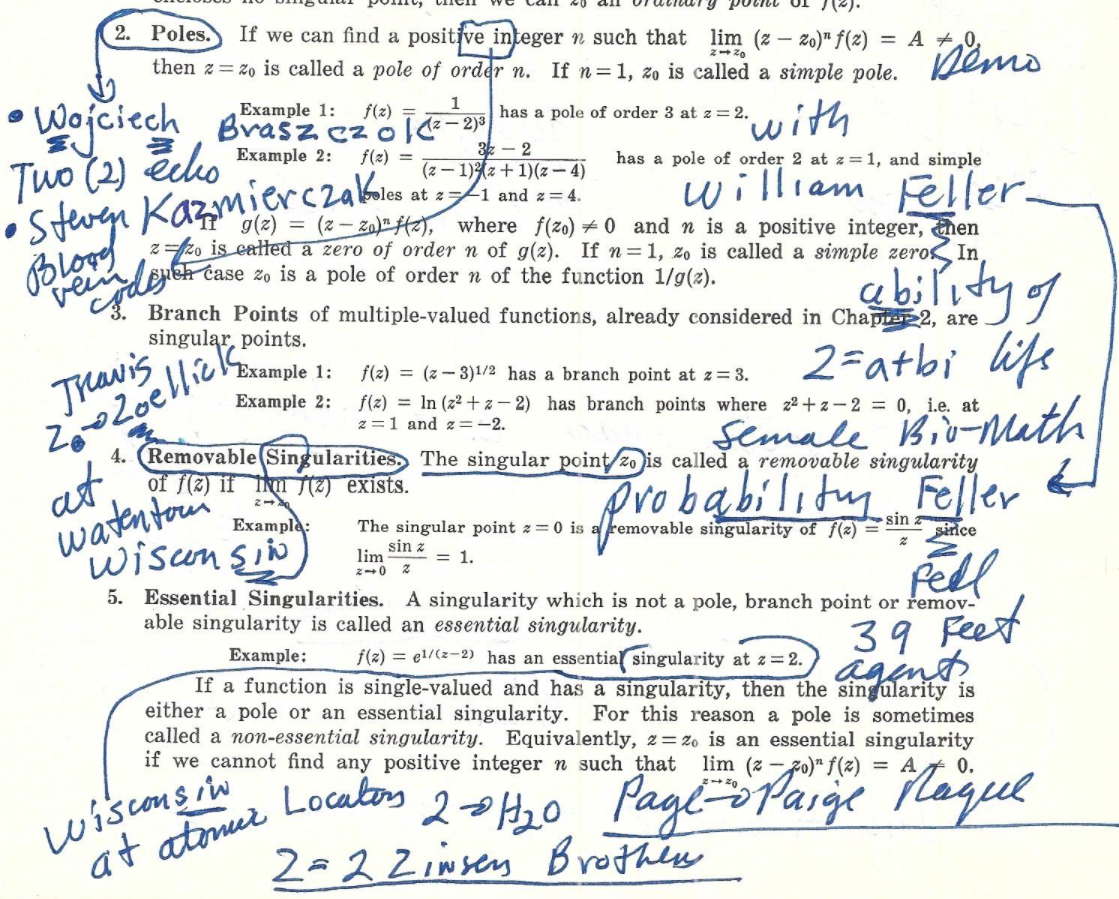 encloses no singular point, then we call z₀ an ordinary point of f(z).
2. Poles. If we can find a positive integer n such that lim z→z₀ (z − z₀)ⁿ f(z) = A ≠ 0,
then z = z₀ is called a pole of order n. If n = 1, z₀ is called a simple pole.
Demo
Example 1: f(z) = 1/(z − 2)³ has a pole of order 3 at z = 2.
with
• Wojciech Braszczok
Example 2: f(z) = (3z − 2)/((z − 1)²(z + 1)(z − 4)) has a pole of order 2 at z = 1, and simple
poles at z = −1 and z = 4.
Two (2) echo
William Feller
• Steven Kazmierczak
If g(z) = (z − z₀)ⁿ f(z), where f(z₀) ≠ 0 and n is a positive integer, then
z = z₀ is called a zero of order n of g(z). If n = 1, z₀ is called a simple zero. In
such case z₀ is a pole of order n of the function 1/g(z).
Blood
vein
codes
ability of
3. Branch Points of multiple-valued functions, already considered in Chapter 2, are
singular points.
life
Z=a+bi
Example 1: f(z) = (z − 3)^1/2 has a branch point at z = 3.
Example 2: f(z) = ln (z² + z − 2) has branch points where z² + z − 2 = 0, i.e. at
z = 1 and z = −2.
Travis
Z₀→Zoellick
female Bio-Math
4. Removable Singularities. The singular point z₀ is called a removable singularity
of f(z) if lim z→z₀ f(z) exists.
at
watertown
Wisconsin
probability Feller
Example: The singular point z = 0 is a removable singularity of f(z) = sin z/z since
lim z→0 sin z/z = 1.
Fell
5. Essential Singularities. A singularity which is not a pole, branch point or remov-
able singularity is called an essential singularity.
39 Feet
agent
Example: f(z) = e^1/(z−2) has an essential singularity at z = 2.
If a function is single-valued and has a singularity, then the singularity is
either a pole or an essential singularity. For this reason a pole is sometimes
called a non-essential singularity. Equivalently, z = z₀ is an essential singularity
if we cannot find any positive integer n such that lim z→z₀ (z − z₀)ⁿ f(z) = A ≠ 0.
Wisconsin
at atomic Locators
2→H₂O
Page→Paige Plaque
Z = 2 Zinsen Brothers